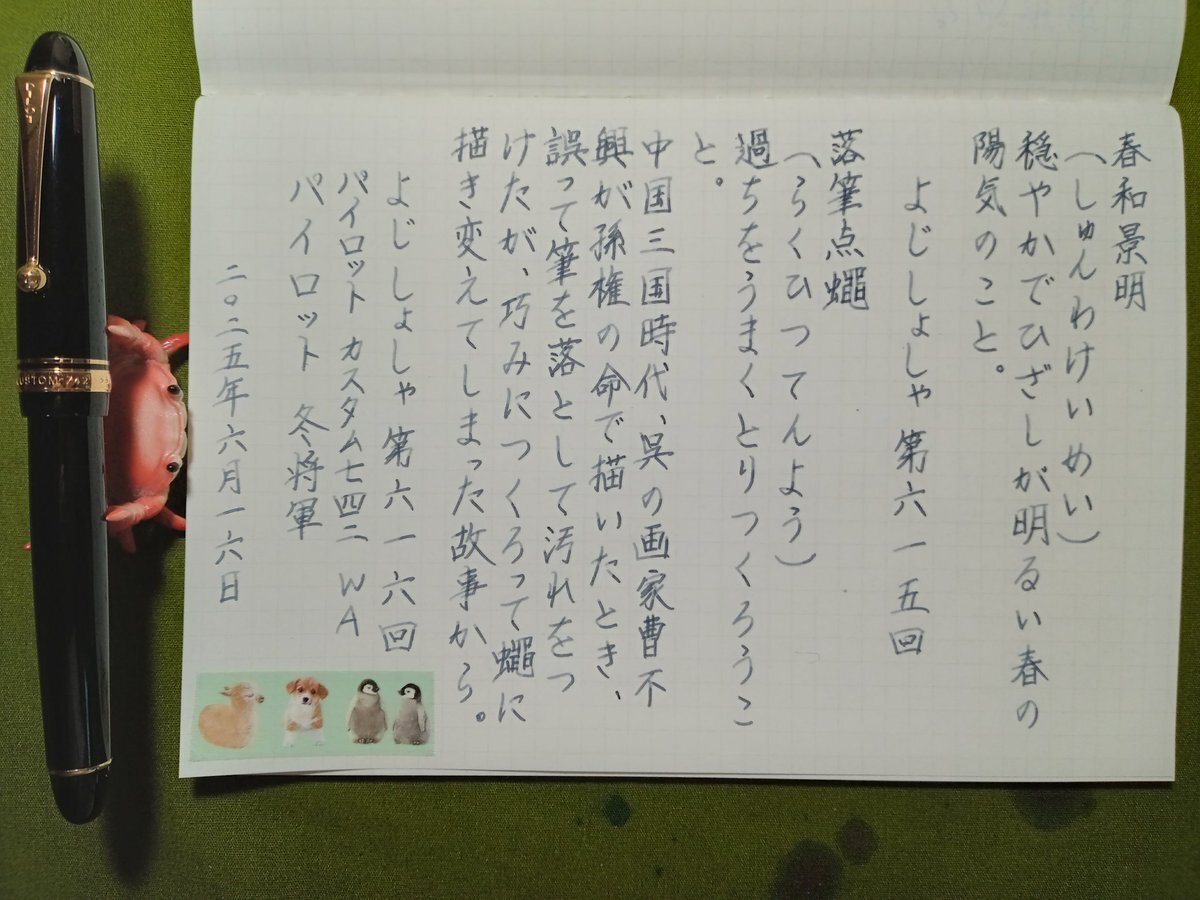 春和景明
(しゅんわけいめい)
穏やかでひざしが明るい春の
陽気のこと。
よじしょしゃ 第六一五回
落筆点蠅
(らくひつてんよう)
過ちをうまくとりつくろうこ
と。
中国三国時代、呉の画家曹不
興が孫権の命で描いたとき、
誤って筆を落として汚れをつ
けたが、巧みにつくろって蠅に
描き変えてしまった故事から。
よじしょしゃ 第六一六回
パイロット カスタム七四二 WA
パイロット 冬将軍
二〇二五年六月一六日
CUSTOM 742